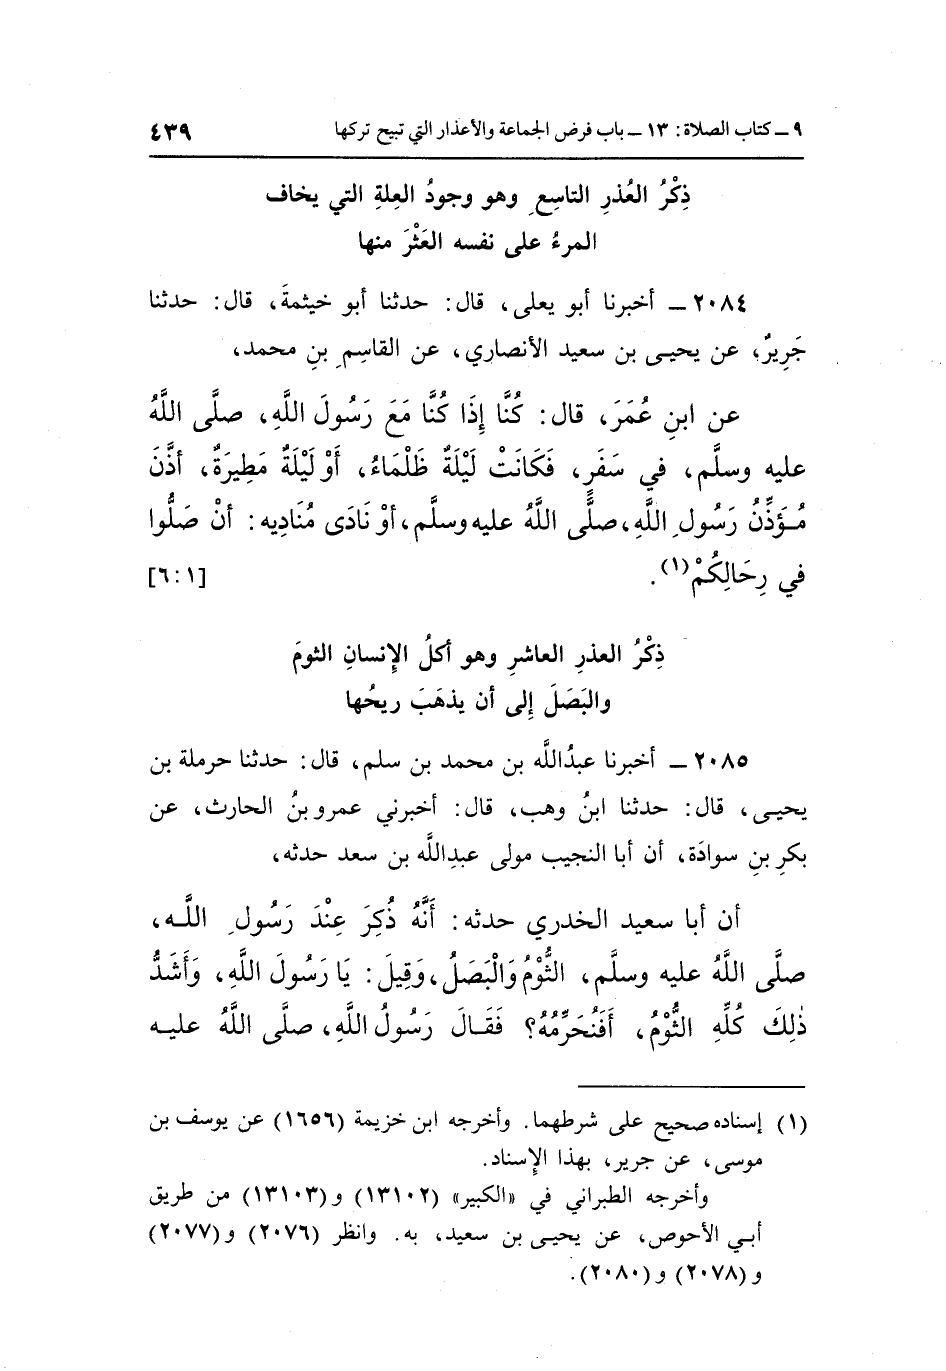 ٩ ـ كتاب الصلاة: ١٣ ـ باب فرض الجماعة والأعذار التي تبيح تركها ٤٣٩
ذِكْرُ العُذرِ التاسِعِ وهو وجودُ العِلةِ التي يخاف
المرءُ على نفسه العَثْرَ منها
٢٠٨٤ ـ أخبرنا أبو يعلى، قال: حدثنا أبو خيثمةَ، قال: حدثنا
جَرِيرٌ، عن يحيى بن سعيد الأنصاري، عن القاسِمِ بنِ محمد،
عن ابنِ عُمَرَ، قال: كُنَّا إِذَا كُنَّا مَعَ رَسُولَ اللَّهِ، صلَّى اللَّهُ
عليه وسلَّم، في سَفَرٍ، فَكَانَتْ لَيْلَةٌ ظَلْمَاءُ، أَوْ لَيْلَةٌ مَطِيرَةٌ، أذَّنَ
مُؤَذِّنُ رَسُولِ اللَّهِ، صلَّى اللَّهُ عليه وسلَّم، أوْ نَادَى مُنَادِيه: أنْ صَلُّوا
في رِحَالِكُمْ(١). [٦:١]
ذِكْرُ العذرِ العاشرِ وهو أكلُ الإِنسانِ الثومَ
والبَصَلَ إِلى أن يذهَبَ ريحُها
٢٠٨٥ ـ أخبرنا عبدُاللَّه بن محمد بن سلم، قال: حدثنا حرملة بن
يحيى، قال: حدثنا ابنُ وهب، قال: أخبرني عمرو بنُ الحارث، عن
بكرِ بنِ سوادَة، أن أبا النجيب مولى عبدِاللَّه بن سعد حدثه،
أن أبا سعيد الخدري حدثه: أَنَّهُ ذُكِرَ عِنْدَ رَسُولِ اللَّه،
صلَّى اللَّهُ عليه وسلَّم، الثُّوْمُ وَالْبَصَلُ، وَقِيلَ: يَا رَسُولَ اللَّهِ، وَأَشَدُّ
ذٰلِكَ كُلِّهِ الثُّوْمُ، أَفَنُحَرِّمُهُ؟ فَقَالَ رَسُولُ اللَّهِ، صلَّى اللَّهُ عليه
(١) إسناده صحيح على شرطهما. وأخرجه ابن خزيمة (١٦٥٦) عن يوسف بن
موسى، عن جرير، بهذا الإِسناد.
وأخرجه الطبراني في «الكبير» (١٣١٠٢) و(١٣١٠٣) من طريق
أبي الأحوص، عن يحيى بن سعيد، به. وانظر (٢٠٧٦) و(٢٠٧٧)
و(٢٠٧٨) و(٢٠٨٠).